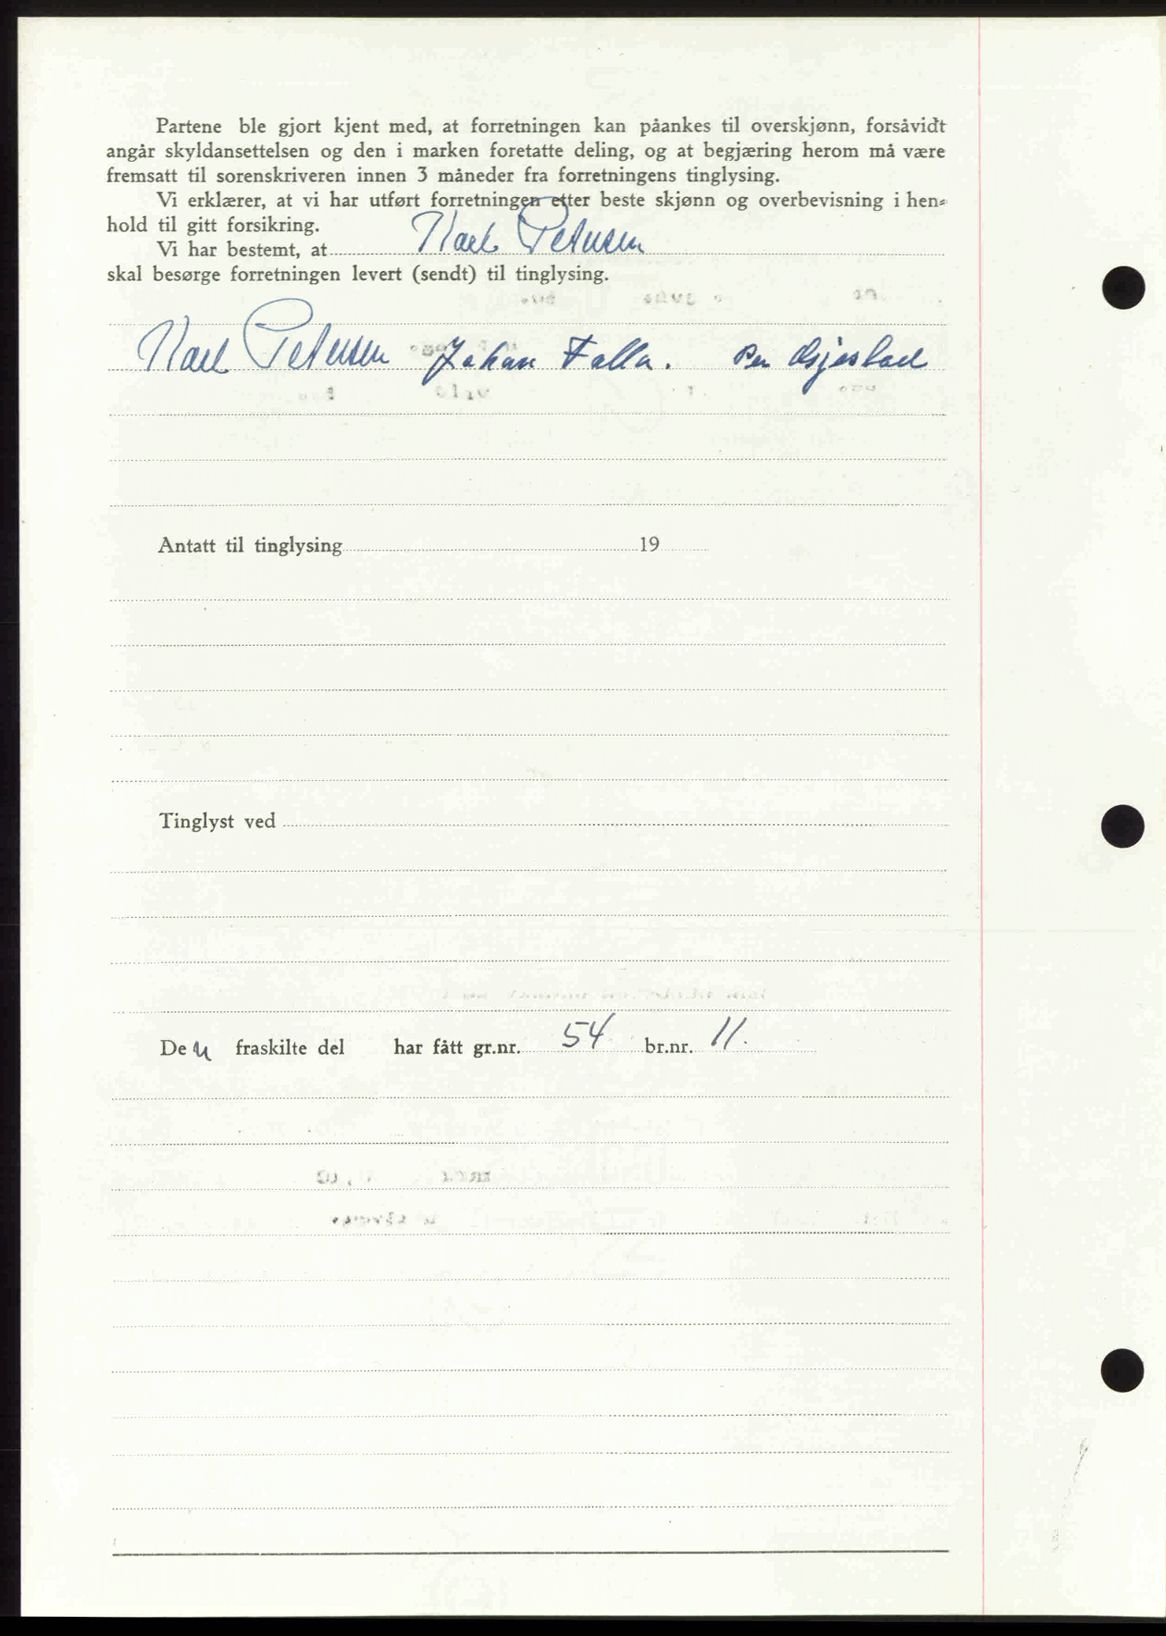 Partene ble gjort kjent med, at forretningen kan påankes til overskjønn, forsåvidt
angår skyldansettelsen og den i marken foretatte deling, og at begjæring herom må være
fremsatt til sorenskriveren innen 3 måneder fra forretningens tinglysing.
Vi erklærer, at vi har utført forretningen etter beste skjønn og overbevisning i hen-
hold til gitt forsikring.
Vi har bestemt, at Karl Petersen
skal besørge forretningen levert (sendt) til tinglysing.
Karl Petersen Johan Falla. Per
Antatt til tinglysing 19
Tinglyst ved
Den fraskilte del har fått gr.nr. 54 br.nr. 11.